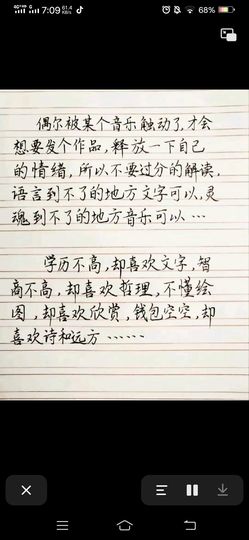 7:09
61.4
KB/s
68%
偶尔被某个音乐触动了,才会
想要发个作品,释放一下自己
的情绪,所以不要过分的解读,
语言到不了的地方文字可以,灵
魂到不了的地方音乐可以…
学历不高,却喜欢文字,智
商不高,却喜欢哲理,不懂绘
图,却喜欢欣赏,钱包空空,却
喜欢诗和远方……